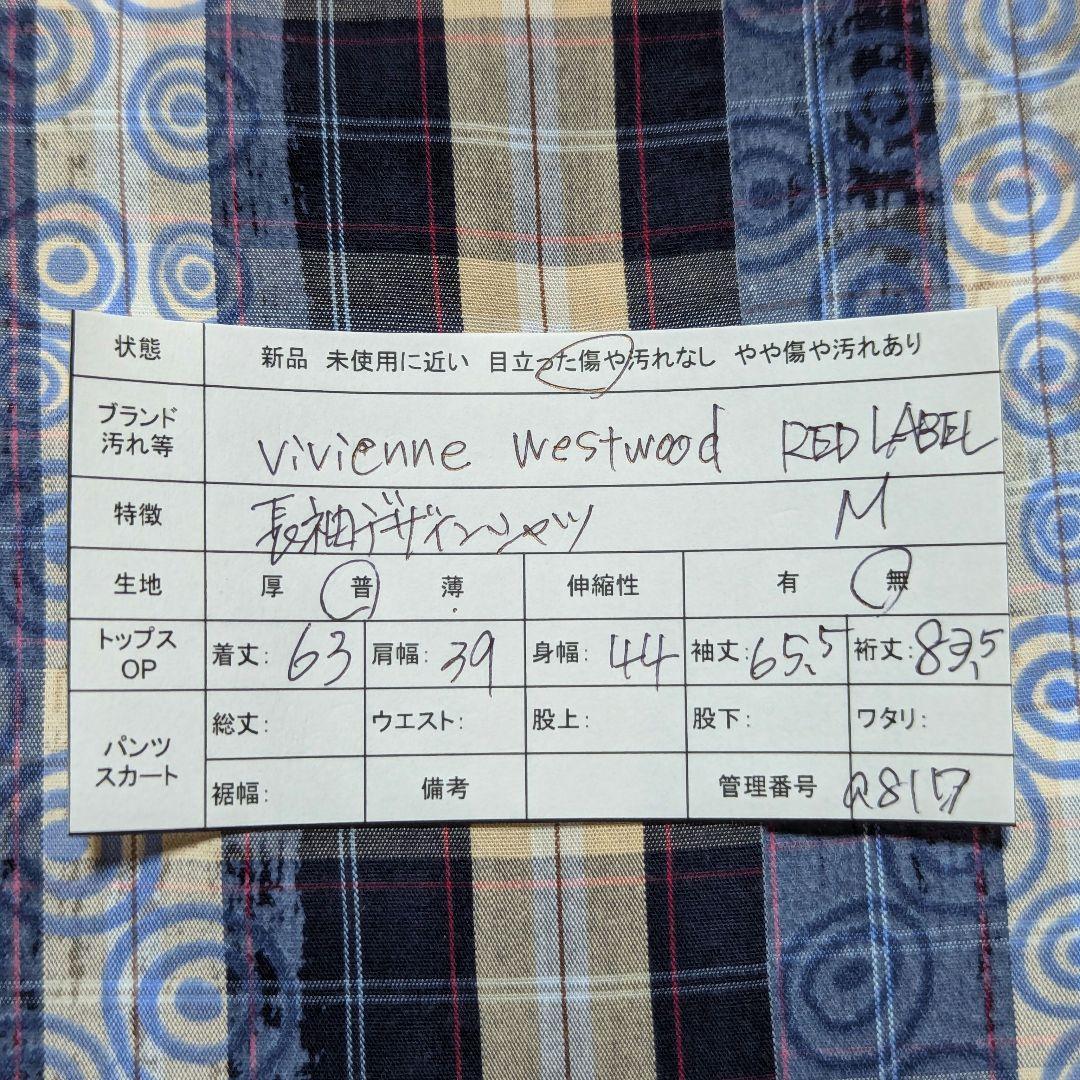 状態 新品 未使用に近い 目立った傷や汚れなし やや傷や汚れあり
ブランド
汚れ等
vivienne westwood RED LABEL
特徴 長袖デザインシャツ M
生地 厚 普 薄 伸縮性 有 無
トップス
OP
着丈: 63 肩幅: 39 身幅: 44 袖丈: 65.5 裄丈: 83.5
パンツ
スカート
総丈: ウエスト: 股上: 股下: ワタリ:
裾幅: 備考 管理番号